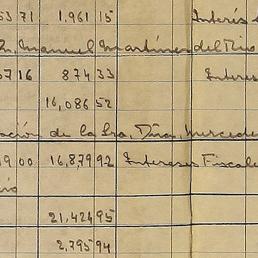 53 71 1.961 15 Interés
Dn. Manuel Martínez del Río
57 16 874 33 Interes
16,086 52
ación de la Sra. Dña. Mercedes
19 00 16,879 92 Intereses Fiscale
21,424 95
2,795 94